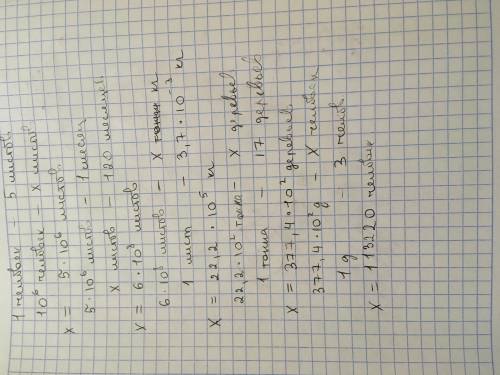 1 человек – 5 листов
10⁶ человек – x листов
x = 5·10⁶ листов.
5·10⁶ листов – 1 месяц
x листов – 120 месяцев.
x = 6·10⁸ листов
6·10⁸ листов – x тонн кг
1 лист – 3,7·10⁻³ кг
x = 22,2·10⁵ кг
22,2·10² тонн – x деревьев
1 тонна – 17 деревьев
x = 377,4·10² деревьев.
377,4·10² д – x человек
1 д – 3 челов.
x = 113220 человек